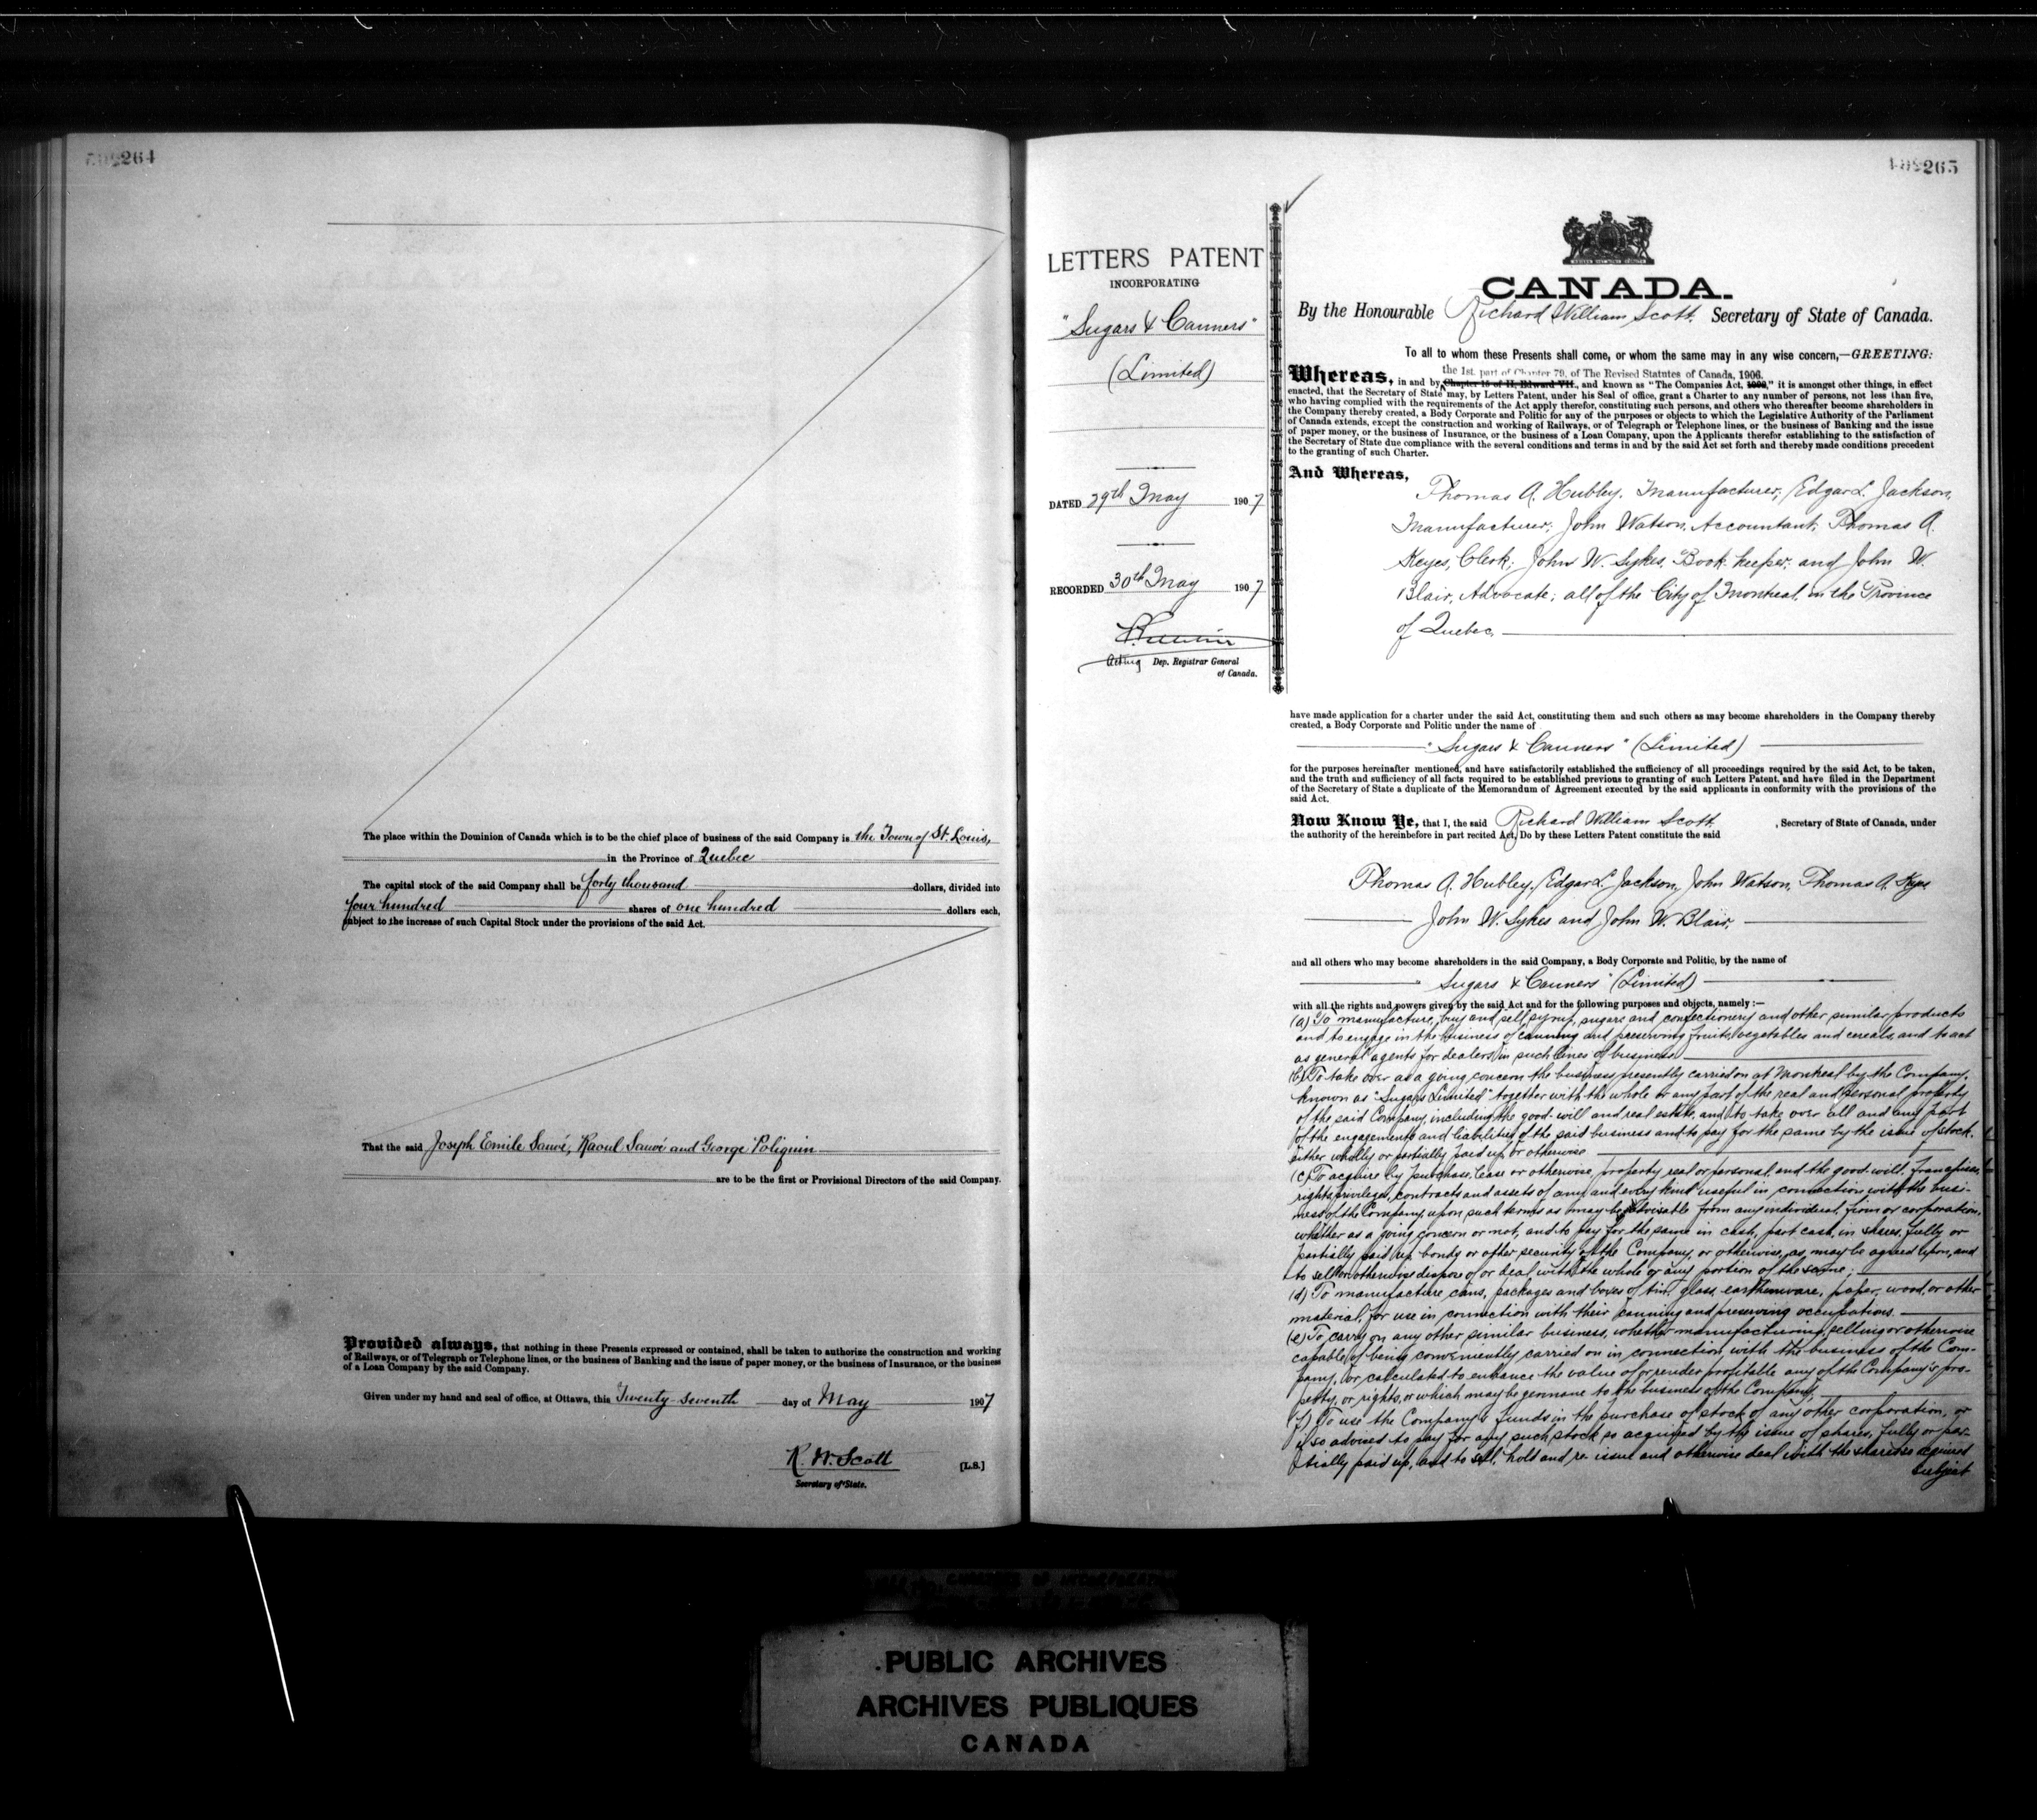 264
The place within the Dominion of Canada which is to be the chief place of business of the said Company is the Town of St. Louis,
in the Province of Quebec
The capital stock of the said Company shall be forty thousand dollars, divided into
four hundred shares of one hundred dollars each,
subject to the increase of such Capital Stock under the provisions of the said Act.
That the said Joseph Emile Sauvé, Raoul Sauvé and George Poliquin
are to be the first or Provisional Directors of the said Company.
Provided always, that nothing in these Presents expressed or contained, shall be taken to authorize the construction and working
of Railways, or of Telegraph or Telephone lines, or the business of Banking and the issue of paper money, or the business of Insurance, or the business
of a Loan Company by the said Company.
Given under my hand and seal of office, at Ottawa, this Twenty-seventh day of May 1907
R. W. Scott
[L.S.]
Secretary of State.
265
LETTERS PATENT
INCORPORATING
"Sugars & Canners"
(Limited)
DATED 29th May 1907
RECORDED 30th May 1907
Acting Dep. Registrar General
of Canada.
CANADA.
By the Honourable Richard William Scott Secretary of State of Canada.
To all to whom these Presents shall come, or whom the same may in any wise concern,—GREETING:
the 1st. part of Chapter 79, of The Revised Statutes of Canada, 1906.
Whereas, in and by Chapter 15 of II, Edward VII., and known as "The Companies Act, 1902," it is amongst other things, in effect
enacted, that the Secretary of State may, by Letters Patent, under his Seal of office, grant a Charter to any number of persons, not less than five,
who having complied with the requirements of the Act apply therefor, constituting such persons, and others who thereafter become shareholders in
the Company thereby created, a Body Corporate and Politic for any of the purposes or objects to which the Legislative Authority of the Parliament
of Canada extends, except the construction and working of Railways, or of Telegraph or Telephone lines, or the business of Banking and the issue
of paper money, or the business of Insurance, or the business of a Loan Company, upon the Applicants therefor establishing to the satisfaction of
the Secretary of State due compliance with the several conditions and terms in and by the said Act set forth and thereby made conditions precedent
to the granting of such Charter.
And Whereas,
Thomas A. Hubley, Manufacturer; Edgar L. Jackson,
Manufacturer; John Watson, Accountant; Thomas A.
Keyes, Clerk; John W. Sykes, Book-keeper; and John W.
Blair, Advocate; all of the City of Montreal, in the Province
of Quebec,
have made application for a charter under the said Act, constituting them and such others as may become shareholders in the Company thereby
created, a Body Corporate and Politic under the name of
"Sugars & Canners" (Limited)
for the purposes hereinafter mentioned, and have satisfactorily established the sufficiency of all proceedings required by the said Act, to be taken,
and the truth and sufficiency of all facts required to be established previous to granting of such Letters Patent, and have filed in the Department
of the Secretary of State a duplicate of the Memorandum of Agreement executed by the said applicants in conformity with the provisions of the
said Act.
Now Know Ye, that I, the said Richard William Scott, Secretary of State of Canada, under
the authority of the hereinbefore in part recited Act, Do by these Letters Patent constitute the said
Thomas A. Hubley, Edgar L. Jackson, John Watson, Thomas A. Keyes
John W. Sykes and John W. Blair,
and all others who may become shareholders in the said Company, a Body Corporate and Politic, by the name of
"Sugars & Canners" (Limited)
with all the rights and powers given by the said Act and for the following purposes and objects, namely :—
(a) To manufacture, buy and sell syrup, sugars and confectionery and other similar products
and to engage in the business of canning and preserving fruits, vegetables and cereals, and to act
as general agents for dealers in such lines of business.
(b) To take over as a going concern the business presently carried on at Montreal by the Company,
known as "Sugars Limited" together with the whole or any part of the real and personal property
of the said Company, including the good-will and real estate, and to take over all and any part
of the engagements and liabilities of the said business and to pay for the same by the issue of stock,
either wholly or partially paid up, or otherwise
(c) To acquire by purchase, lease or otherwise, property real or personal, and the good will, franchises,
rights, privileges, contracts and assets of any and every kind useful in connection with the busi-
ness of the Company, upon such terms as may be advisable from any individual, firm or corporation,
whether as a going concern or not, and to pay for the same in cash, part cash, in shares, fully or
partially paid up, bonds or other security of the Company, or otherwise, as may be agreed upon, and
to sell or otherwise dispose of or deal with the whole or any portion of the same;
(d) To manufacture cans, packages and boxes of tin, glass, earthenware, paper, wood, or other
material, for use in connection with their canning and preserving occupations.
(e) To carry on any other similar business, whether manufacturing, selling or otherwise
capable of being conveniently carried on in connection with the business of the Com-
pany, or calculated to enhance the value of or render profitable any of the Company's pro-
perty, or rights, or which may be germane to the business of the Company,
(f) To use the Company's funds in the purchase of stock of any other corporation, or
if so advised to pay for any such stock so acquired by the issue of shares, fully or par-
tially paid up, and to sell, hold and re-issue and otherwise deal with the shares so acquired
subject
PUBLIC ARCHIVES
ARCHIVES PUBLIQUES
CANADA